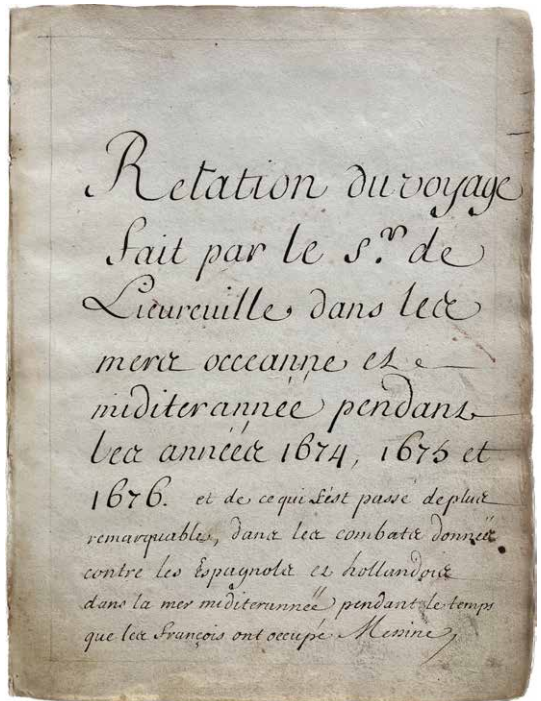 Relation du voyage
fait par le s.r de
Lieureuille dans les
mers occeanne et
miditerannéé pendant
les annéés 1674, 1675 et
1676. et de ce qui s'est passé de plus
remarquable, dans les combats donnéz
contre les Espagnols et hollandois
dans la mer miditerannéé pendant le temps
que les françois ont occupé Messine,